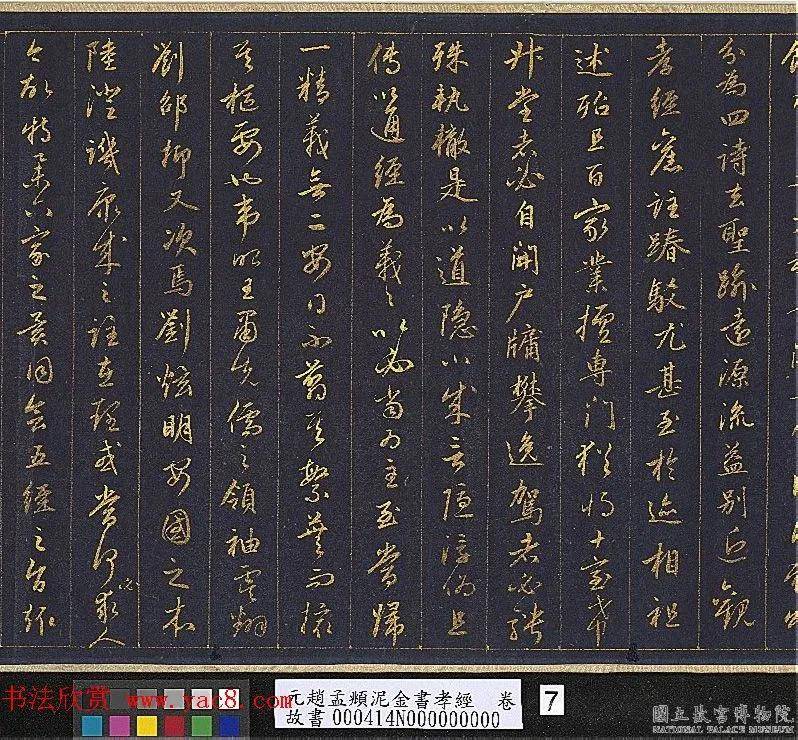 分為四詩去聖踰遠源流益別近觀
孝經舊註踳駁尤甚至於迹相祖
述殆且百家業擅專門猶將十室希
升堂者必自開戶牖攀逸駕者必騁
殊軌轍是以道隱小成言隱浮偽且
傳以通經為義〻以必當為主至當歸
一精義無二安得不翦其繁蕪而撮
其樞要也韋昭王肅先儒之領袖虞翻
劉邵抑又次焉劉炫明安國之本
陸澄譏康成之註在理或當何必求人
今故特舉六家之異同會五經之旨趣
书法欣赏 www.yac8.com
元趙孟頫泥金書孝經 卷
故書000414N000000000
7
國立故宮博物院
NATIONAL PALACE MUSEUM